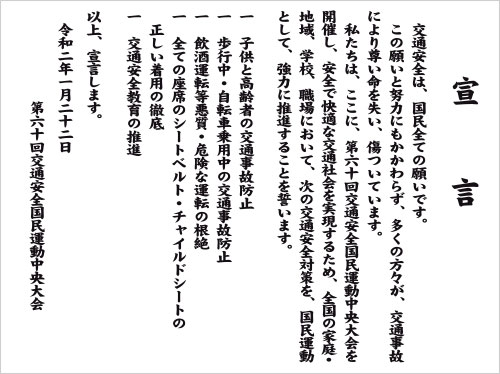 宣言
交通安全は、国民全ての願いです。
この願いと努力にもかかわらず、多くの方々が、交通事故
により尊い命を失い、傷ついています。
私たちは、ここに、第六十回交通安全国民運動中央大会を
開催し、安全で快適な交通社会を実現するため、全国の家庭・
地域、学校、職場において、次の交通安全対策を、国民運動
として、強力に推進することを誓います。
一 子供と高齢者の交通事故防止
一 歩行中・自転車乗用中の交通事故防止
一 飲酒運転等悪質・危険な運転の根絶
一 全ての座席のシートベルト・チャイルドシートの
正しい着用の徹底
一 交通安全教育の推進
以上、宣言します。
令和二年一月二十二日
第六十回交通安全国民運動中央大会